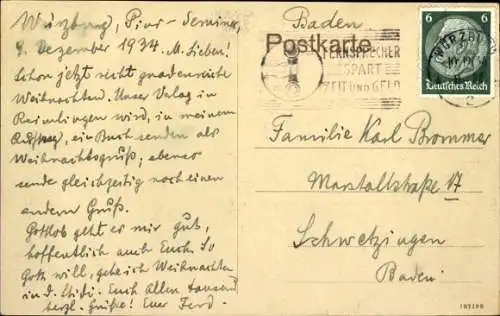 Würzburg, Pius-Seminar,
9. Dezember 1934. M. Lieben!
Schon jetzt recht gnadenreiche
Weihnachten. Unser Verlag in
Reimlingen wird, in meinem
Auftrag, ein Buch senden als
Weihnachtsgruß; ebenso
sende gleichzeitig noch einen
andern Gruß.
Gottlob geht es mir gut,
hoffentlich auch Euch. So
Gott will, gehe ich Weihnachten
in d. Euch Allen tausend
herzl. Grüße! Euer Ferd.
Baden
Postkarte
FERNSPRECHER
SPART
ZEIT UND GELD
WÜRZBURG
2
6 6
Deutsches Reich
Familie Karl Brommer
Marstallstraße 17
Schwetzingen
Baden.